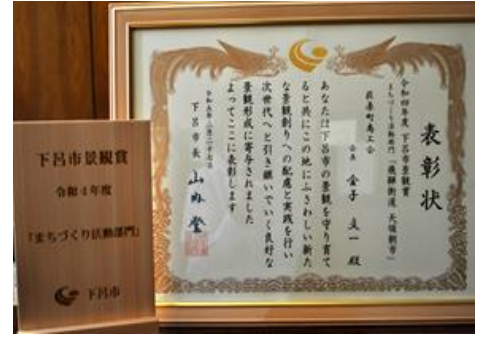 下呂市景観賞
令和4年度
「まちづくり活動部門」
下呂市
表彰状
令和四年度 下呂市景観賞
まちづくり活動部門「飛騨街道 天領朝市」
萩原町商工会
会長 金子 文一 殿
あなたは下呂市の景観を守り育て
ると共にこの地にふさわしい新た
な景観創りへの配慮と実践を行い
次世代へと引き継いでいく良好な
景観形成に寄与されました
よってここに表彰します
令和五年二月二十七日
下呂市長 山内 登